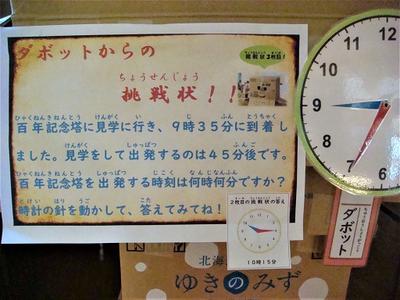 ダボットからの
挑戦状3枚目！
ちょうせんじょう
挑戦状！！
ひゃくねんきねんとう けんがく い じ ふん とうちゃく
百年記念塔に見学に行き、9時35分に到着し
けんがく しゅっぱつ ふんご
ました。見学をして出発するのは45分後です。
ひゃくねんきねんとう しゅっぱつ じこく なんじなんぷん
百年記念塔を出発する時刻は何時何分ですか？
とけい はり うご こた
時計の針を動かして、答えてみてね！
2枚目の挑戦状の答え
10時15分
12
1
2
3
9
8
7
6
ダボット
北海
ゆきのみず